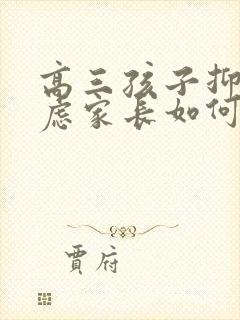 高三孩子抑
虑家长如何
贾府